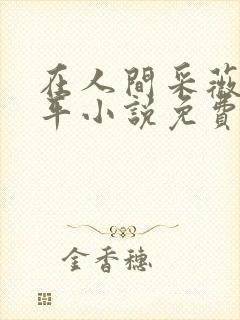 在人間采薇
年小説免費
金香穗